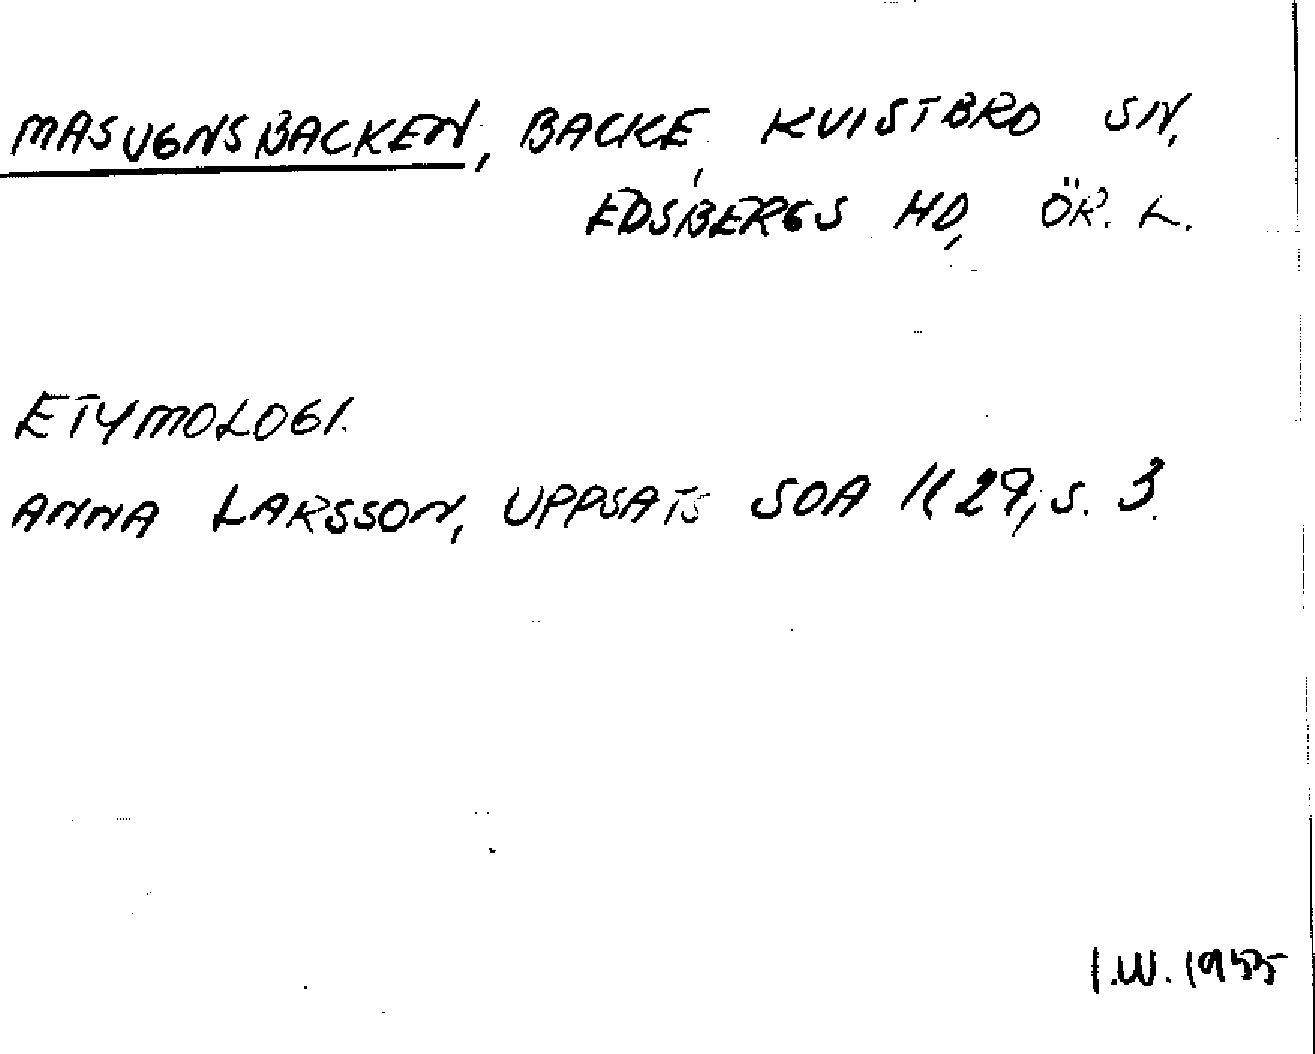 MASUGNSBACKEN, BACKE, KVISTBRO SN,
EDSBERGS HD, ÖR. L.
ETYMOLOGI.
ANNA LARSSON, UPPSATS SOA 1(29, S. 3.
I.W. 1955